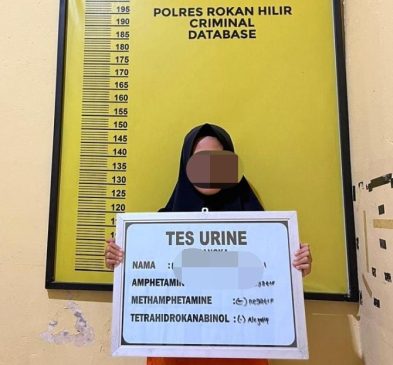 POLRES ROKAN HILIR
CRIMINAL
DATABASE
195
190
185
180
175
170
165
160
155
150
145
140
135
130
125
120
TES URINE
NAMA :
AMPHETAMIN
METHAMPHETAMINE :(-) negatif
TETRAHIDROKANABINOL :(-) Negatif